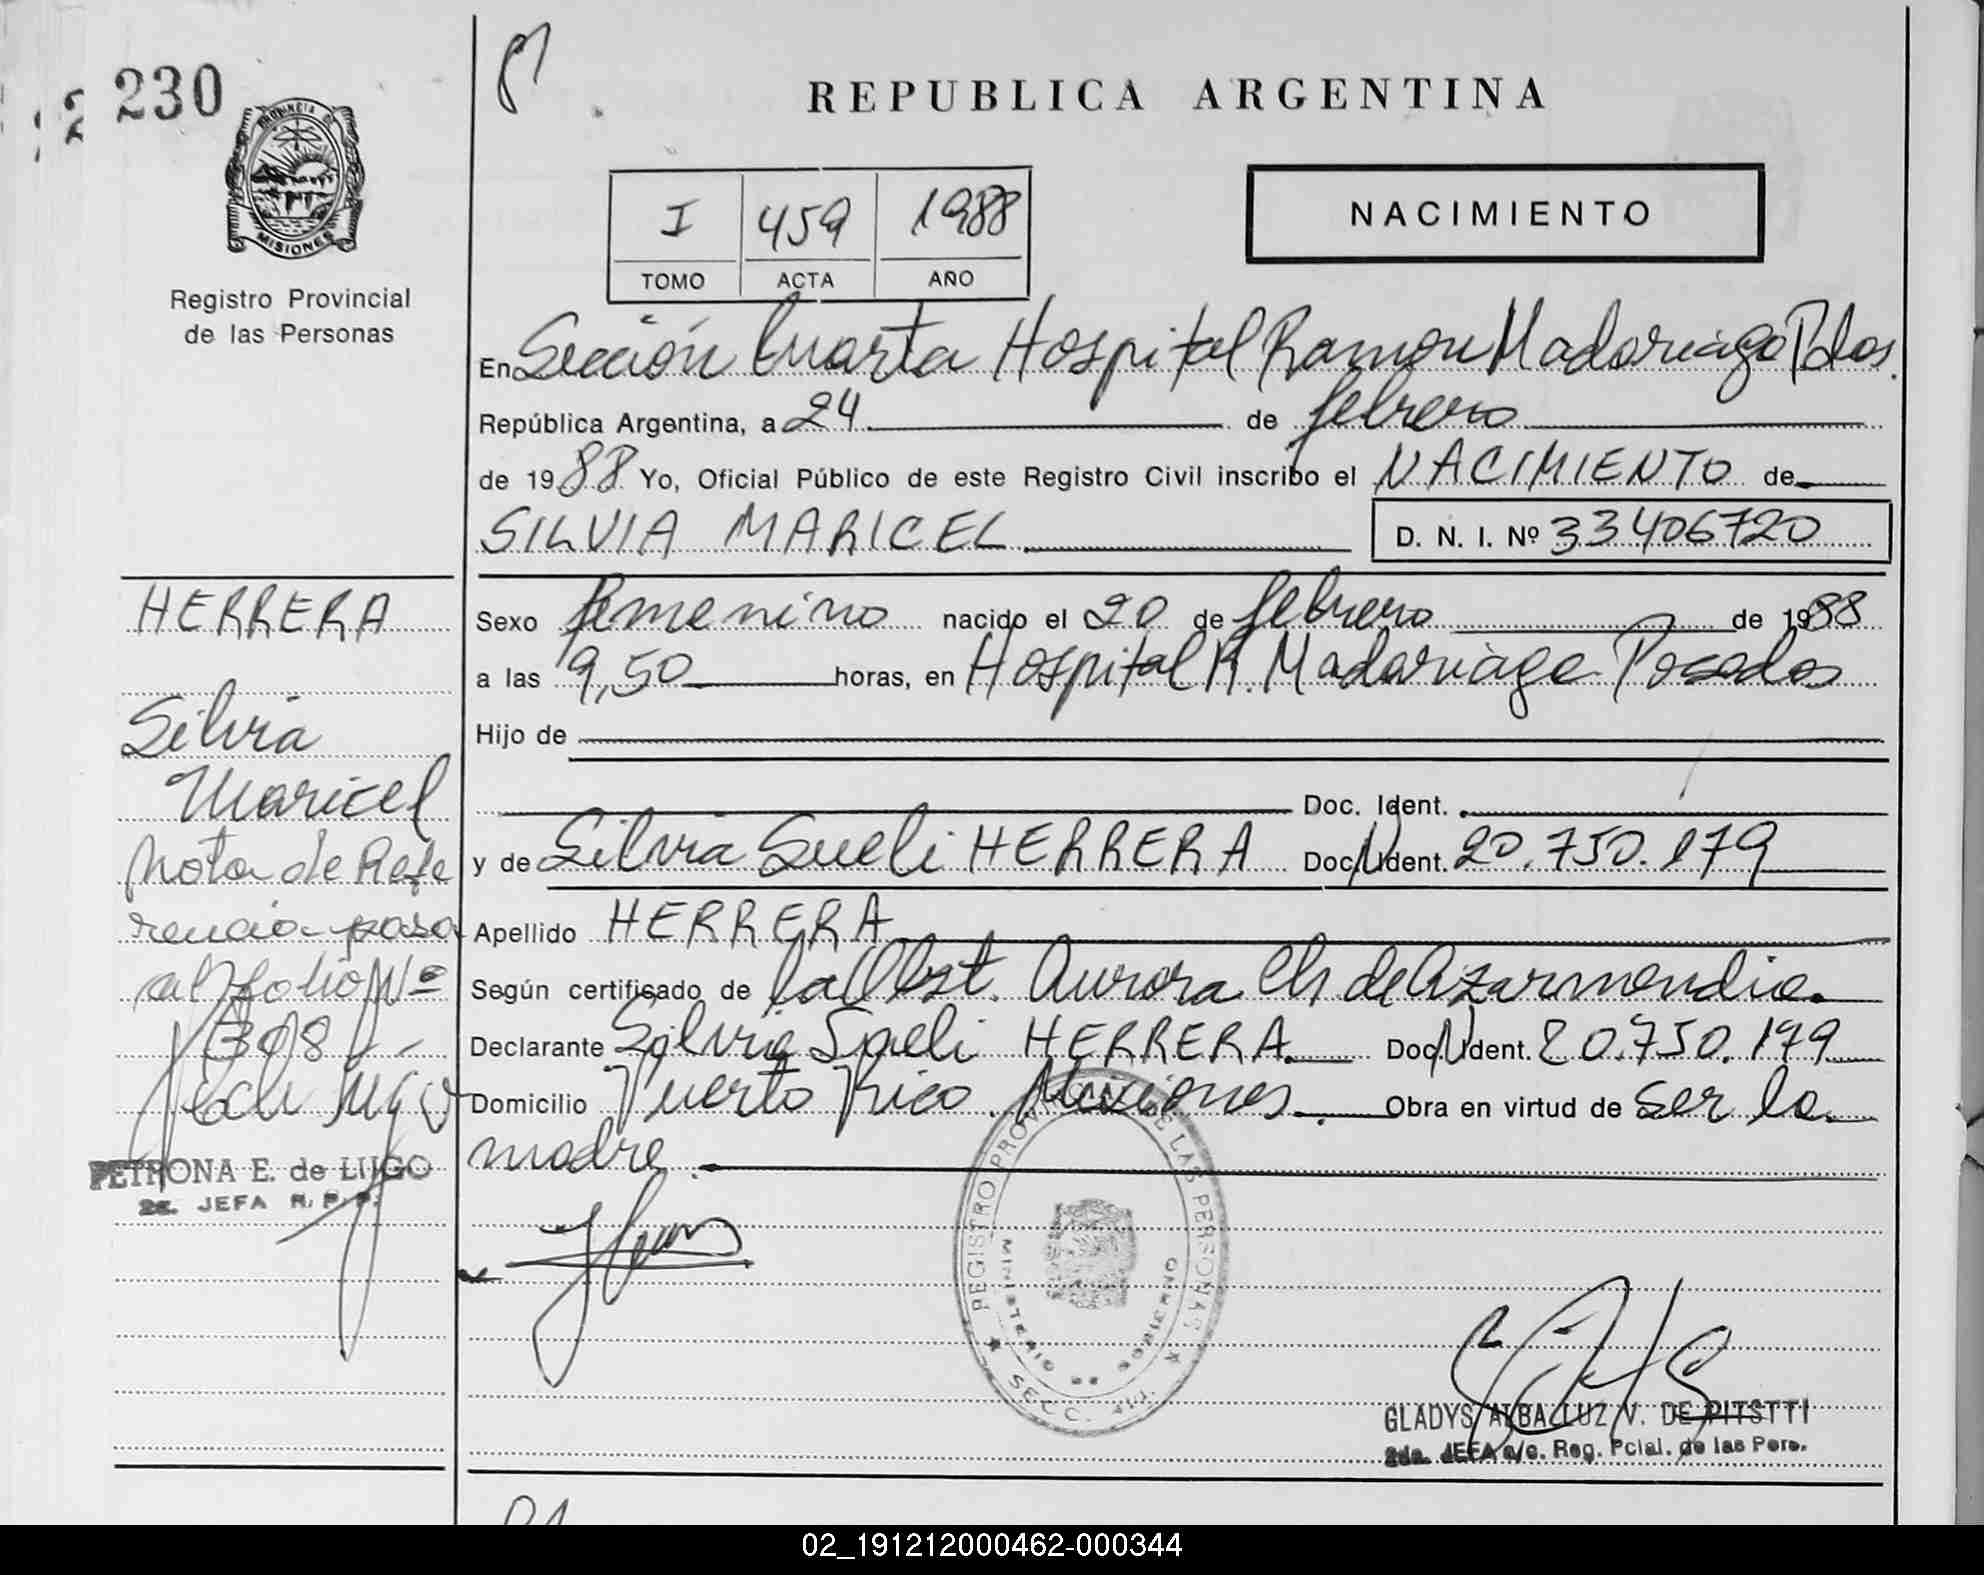 230
PROVINCIA DE
MISIONES
Registro Provincial
de las Personas
REPUBLICA ARGENTINA
I 459 1988
TOMO ACTA AÑO
NACIMIENTO
En Sección Cuarta Hospital Ramon Madariaga Pdas.
República Argentina, a 24 de febrero
de 1988 Yo, Oficial Público de este Registro Civil inscribo el NACIMIENTO de
SILVIA MARICEL
D. N. I. Nº 33406720
HERRERA
Silvia
Maricel
Nota de Refe
rencia pasa
al folio Nº
308
PETRONA E. de LUGO
2a. JEFA R. P. P.
Sexo femenino nacido el 20 de febrero de 1988
a las 9,50 horas, en Hospital R. Madariaga Posadas
Hijo de
Doc. Ident.
y de Silvia Sueli HERRERA Doc. Ident. 20.750.179
Apellido HERRERA
Según certificado de la Obst. Aurora Ch de Azarmendia.
Declarante Silvia Sueli HERRERA Doc. Ident. 20.750.179
Domicilio Puerto Rico Misiones. Obra en virtud de ser la
madre.
REGISTRO PROV. DE LAS PERSONAS
MINISTERIO GOBIERNO
SECC. 4ta.
GLADYS ALBA LUZ V. DE PITSTTI
2da. JEFA a/c. Reg. Pcial. de las Pers.
02_191212000462-000344